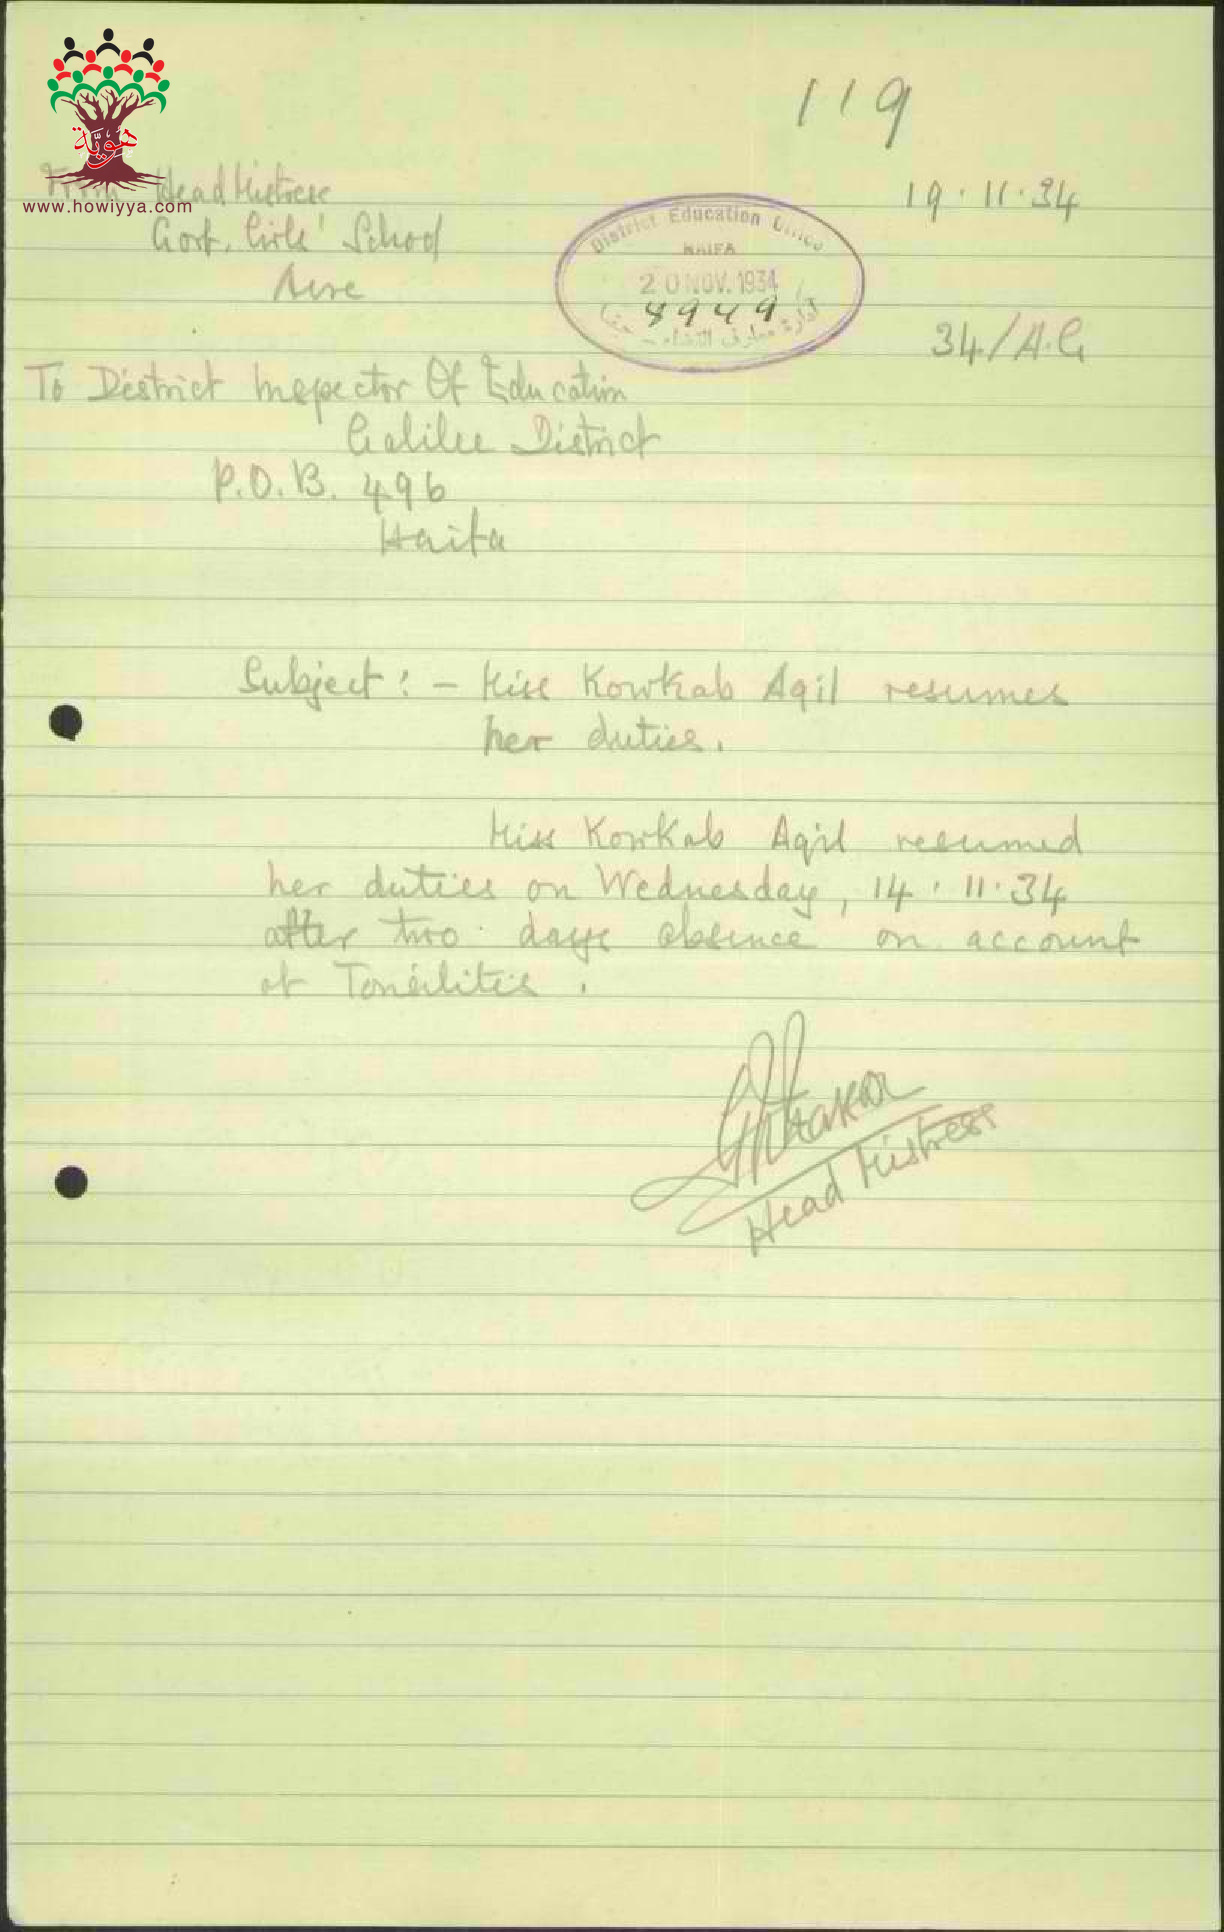 119
هويّة
www.howiyya.com
From Head Mistress
19.11.34
Govt. Girls' School
Acre
District Education Office
HAIFA
20 NOV. 1934
8949
إدارة معارف اللواء - حيفا
34/A.G
To District Inspector Of Education
Galilee District
P.O.B. 496
Haifa
Subject : - Miss Kowkab Aqil resumes
her duties.
Miss Kowkab Aqil resumed
her duties on Wednesday, 14.11.34
after two days absence on account
of Tonsilitis.
Head Mistress